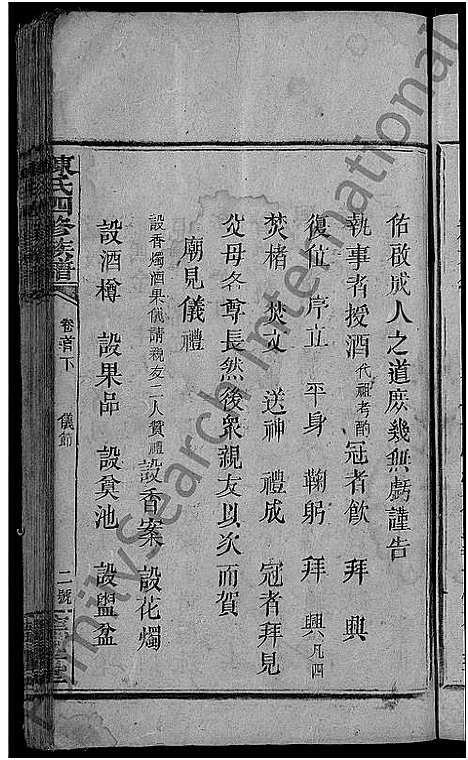 佑啟成人之道庶幾無虧謹告
執事者授酒代祖考酌冠者飲 拜 興
復位 序立 平身 鞠躬 拜 興凡四
焚楮 焚文 送神 禮成 冠者拜見
父母各尊長然後衆親友以次而賀
廟見儀禮
設香燭酒果儀請親友二人贊禮 設香案 設花燭
設酒樽 設果品 設奠池 設盥盆
陳氏四修族譜 卷首下 儀節 二號
Family Search International